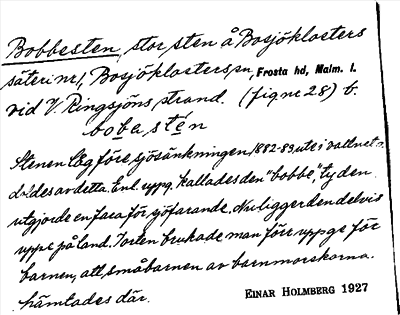 Bobbesten, stor sten å Bosjöklosters
säteri nr 1, Bosjöklosters sn, Frosta hd, Malm. l.
vid V. Ringsjöns strand. (fig nr 28) b.
bobestén
Stenen låg före sjösänkningen 1882-83, ute i vattnet o.
doldes av detta. Enl. uppg. kallades den "bobbe", ty den
utgjorde en fara för sjöfarande. Nu ligger den delvis
uppe på land. I orten brukade man förr uppge för
barnen, att småbarnen av barnmorskorna
hämtades där.
EINAR HOLMBERG 1927